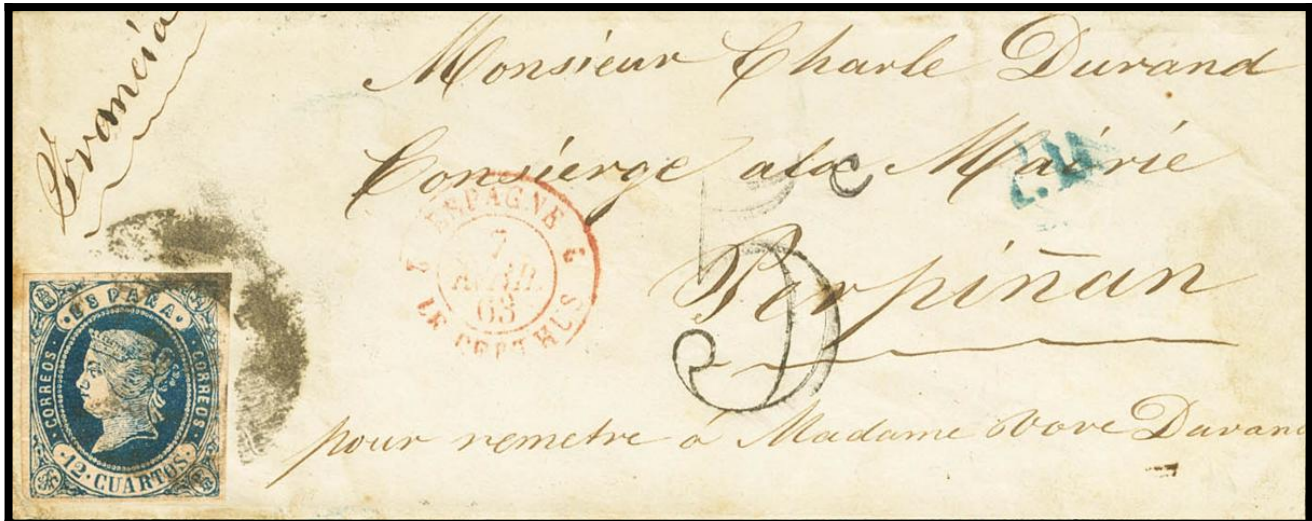 Francia
Monsieur Charle Durand
Concierge ala Mairie
Perpiñan
pour remetre á Madame Durand
ESPAGNE
7
AVRIL
63
LE PERTHUS
5
ESPAÑA
CORREOS
CORREOS
12 CUARTOS